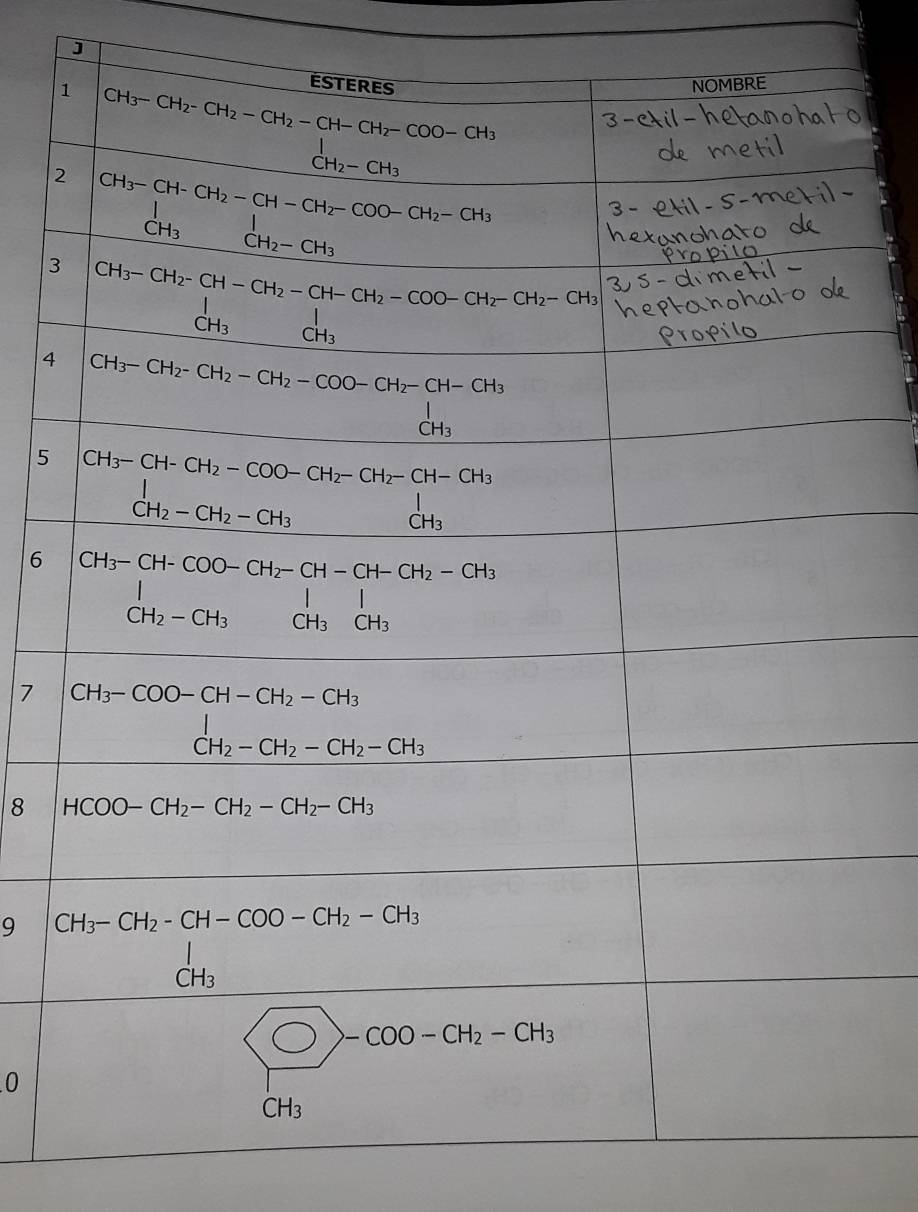 J
ÉSTERES NOMBRE
1 CH3– CH2- CH2 – CH2 – CH– CH2– COO– CH3
CH2– CH3
3-etil-hetanohato
de metil
2 CH3– CH- CH2 – CH – CH2– COO– CH2– CH3
CH3 CH2– CH3
3- etil-5-metil-
hexanohato de
propilo
3 CH3– CH2- CH – CH2 – CH– CH2 – COO– CH2– CH2– CH3
CH3 CH3
3,5-dimetil-
heptanohato de
propilo
4 CH3– CH2- CH2 – CH2 – COO– CH2– CH– CH3
CH3
5 CH3– CH- CH2 – COO– CH2– CH2– CH– CH3
CH2 – CH2 – CH3 CH3
6 CH3– CH- COO– CH2– CH – CH– CH2 – CH3
CH2 – CH3 CH3 CH3
7 CH3– COO– CH – CH2 – CH3
CH2 – CH2 – CH2– CH3
8 HCOO– CH2– CH2 – CH2– CH3
9 CH3– CH2 - CH – COO – CH2 – CH3
CH3
– COO – CH2 – CH3
0
CH3